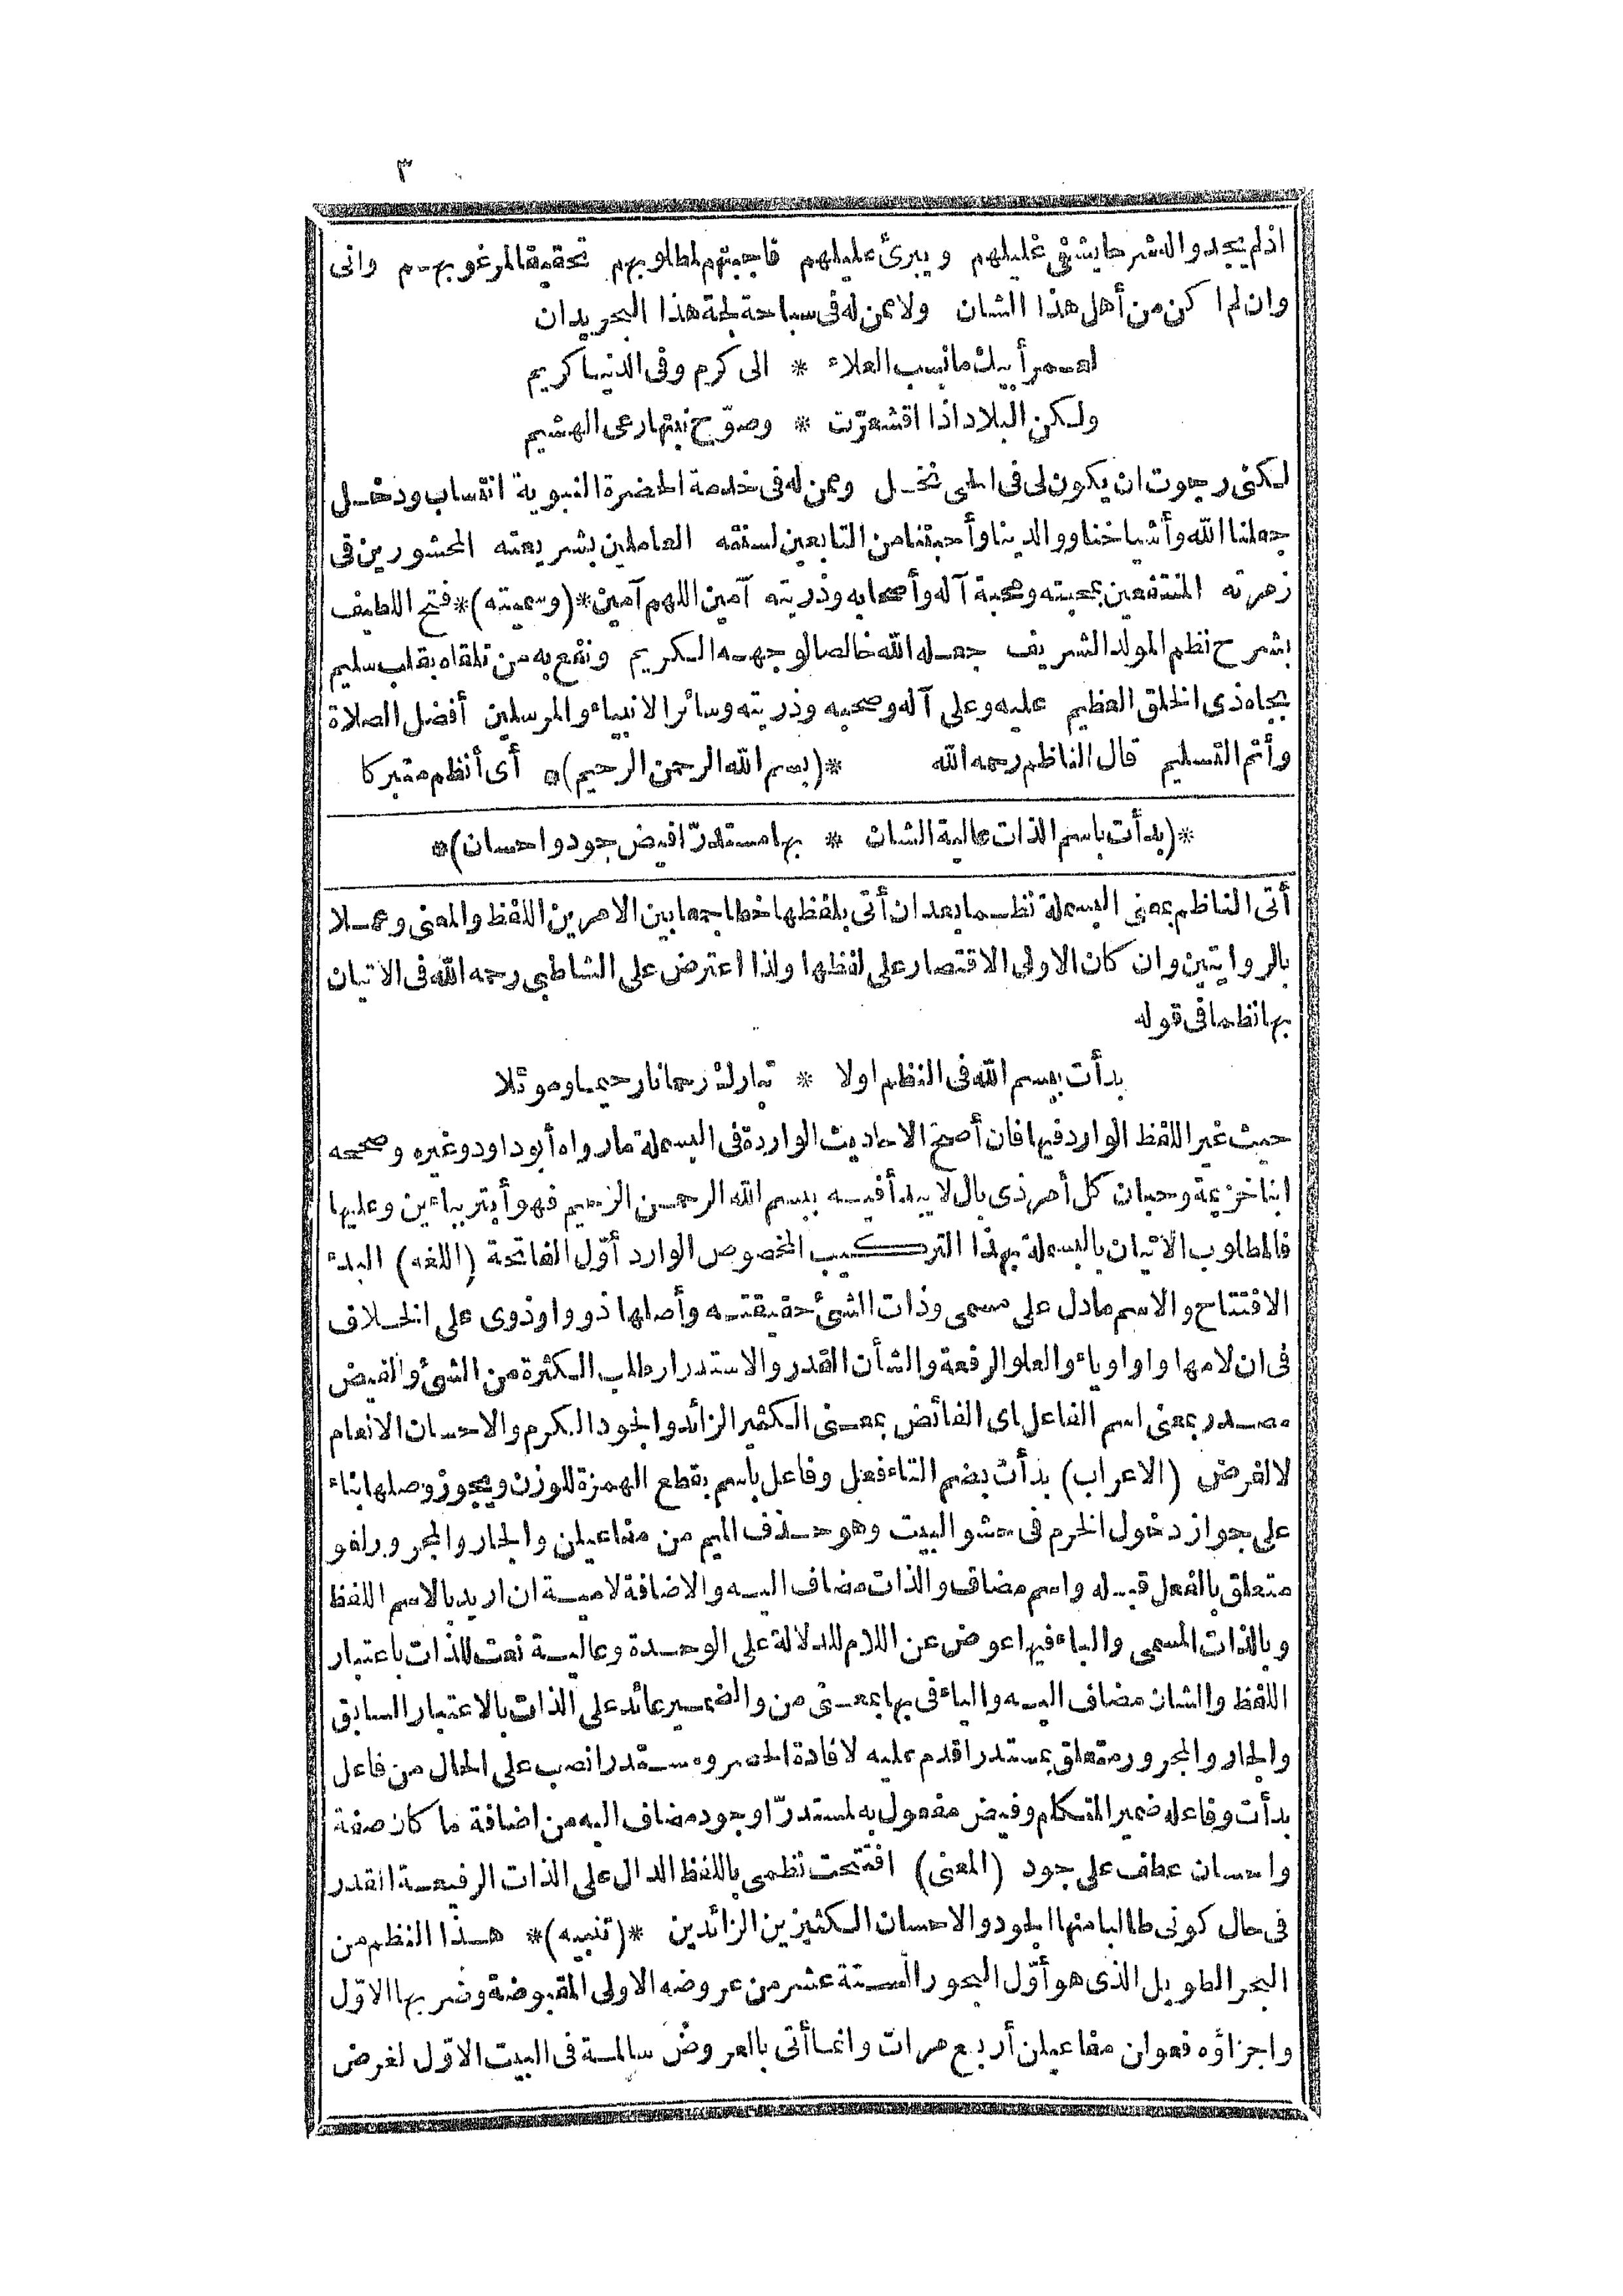 ٣
اذ لم يجدوا له شرحا يشفى غليلهم ويبرئ عليلهم فاجبتهم لمطلوبهم تحقيقا لمرغوبهم وانى
وان لم اكن من أهل هذا الشان ولا ممن له فى سباحة لجة هذا البحر يدان
لعمر أبيك ما نسب العلاء * الى كرم وفى الدنيا كريم
ولكن البلاد اذا اقشعرّت * وصوّح نبتها رعى الهشيم
لكنى رجوت ان يكون لى فى الحى نخل وممن له فى خدمة الحضرة النبوية انتساب ودخل
جعلنا الله وأشياخنا ووالدينا وأحبتنا من التابعين لسنته العاملين بشريعته المحشورين فى
زمرته المنتفعين بمحبته ومحبة آله وأصحابه وذريته آمين اللهم آمين *(وسميته)* فتح اللطيف
بشرح نظم المولد الشريف جعله الله خالصا لوجهه الكريم ونفع به من تلقاه بقلب سليم
بجاه ذى الخلق العظيم عليه وعلى آله وصحبه وذريته وسائر الانبياء والمرسلين أفضل الصلاة
وأتم التسليم قال الناظم رحمه الله *(بسم الله الرحمن الرحيم)* أى أنظم متبركا
*(بدأت باسم الذات عالية الشان * بها مستدرّا فيض جود واحسان)*
أتى الناظم بمعنى البسملة نظما بعد ان أتى بلفظها خطا جمعا بين الامرين اللفظ والمعنى وعملا
بالروايتين وان كان الاولى الاقتصار على لفظها ولذا اعترض على الشاطبى رحمه الله فى الاتيان
بها نظما فى قوله
بدأت ببسم الله فى النظم اولا * تبارك رحمانا رحيما وموئلا
حيث غير اللفظ الوارد فيها فان أصح الاحاديث الواردة فى البسملة ما رواه أبو داود وغيره وصححه
ابنا خزيمة وحبان كل أمر ذى بال لا يبدأ فيه ببسم الله الرحمن الرحيم فهو أبتر بباءين وعليها
فالمطلوب الاتيان بالبسملة بهذا التركيب المخصوص الوارد أوّل الفاتحة (اللغه) البدء
الافتتاح والاسم ما دل على مسمى وذات الشئ حقيقته وأصلها ذو واو ذوى على الخلاف
فى ان لامها واو او ياء والعلو الرفعة والشأن القدر والاستدرار طلب الكثرة من الشئ والفيض
مصدر بمعنى اسم الفاعل اى الفائض بمعنى الكثير الزائد والجود الكرم والاحسان الانعام
لا لغرض (الاعراب) بدأت بضم التاء فعل وفاعل باسم بقطع الهمزة للوزن ويجوز وصلها بناء
على جواز دخول الخرم فى حشو البيت وهو حذف الميم من مفاعيلن والجار والمجرور لغو
متعلق بالفعل قبله واسم مضاف والذات مضاف اليه والاضافة لامية ان اريد بالاسم اللفظ
وبالذات المسمى والباء فيها عوض عن اللام للدلالة على الوحدة وعالية نعت للذات باعتبار
اللفظ والشان مضاف اليه والباء فى بها بمعنى من والضمير عائد على الذات بالاعتبار السابق
والجار والمجرور متعلق بمستدرا قدم عليه لافادة الحصر ومستدرا نصب على الحال من فاعل
بدأت وفاعله ضمير المتكلم وفيض مفعول به لمستدرّا وجود مضاف اليه من اضافة ما كان صفة
واحسان عطف على جود (المعنى) افتتحت نظمى باللفظ الدال على الذات الرفيعة القدر
فى حال كونى طالبا منها الجود والاحسان الكثيرين الزائدين *(تنبيه)* هذا النظم من
البحر الطويل الذى هو أوّل البحور الستة عشر من عروضه الاولى المقبوضة وضربها الاوّل
واجزاؤه فعولن مفاعيلن أربع مرات وانما أتى بالعروض سالمة فى البيت الاوّل لغرض